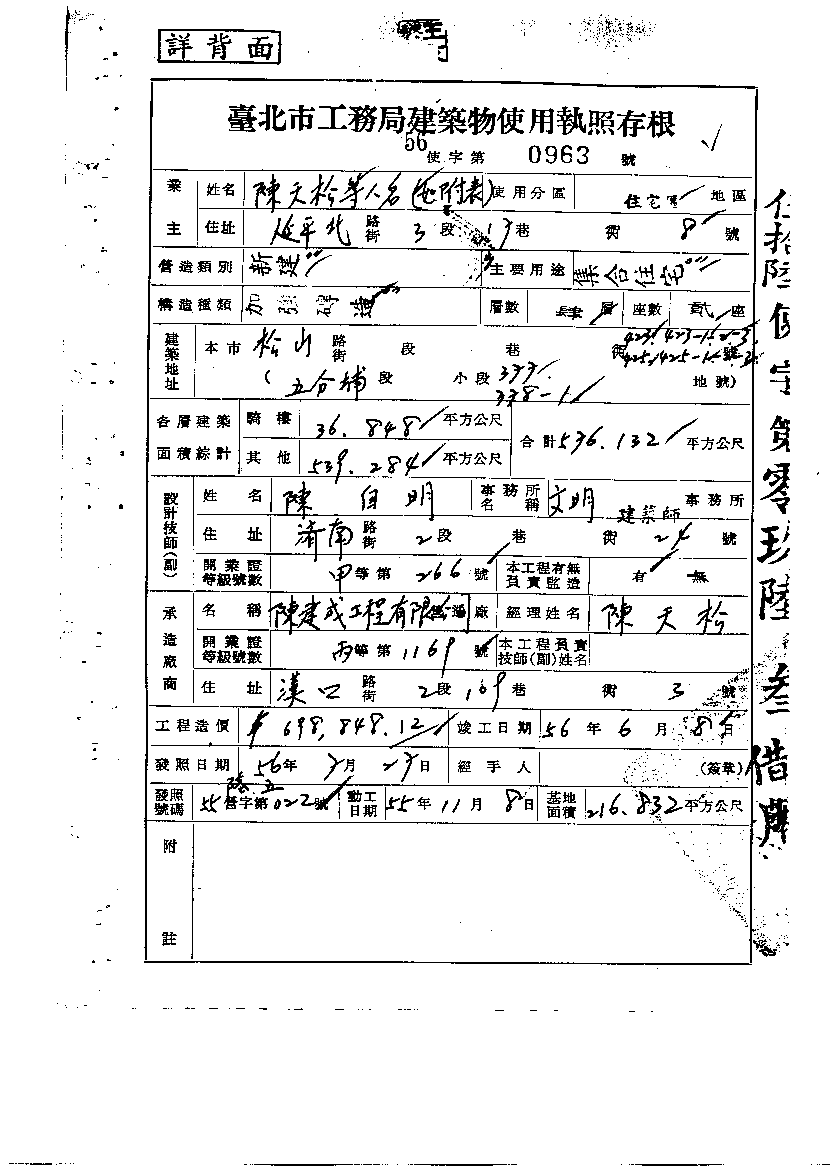 詳背面
臺北市工務局建築物使用執照存根
56使字第 0963 號
業主 姓名 陳天松等人名 使用分區 住宅 地區
住址 延平北 路街 3 段 17 巷 衖 8 號
營造類別 新建 主要用途 集合住宅
構造種類 加強磚造 層數 肆 層 座數 貳 座
建築地址 本市 松山 路街 段 巷 衖 號
(五分埔 段 小段 337 338-1 地號)
各層建築面積綜計 騎樓 36.848 平方公尺 合計 536.132 平方公尺
其他 539.284 平方公尺
設計技師(副) 姓名 陳 明 事務所名稱 文明 建築師 事務所
住址 濟南 路街 2 段 巷 衖 24 號
開業證等級號數 甲等第 266 號 本工程有無負責監造 有 無
承造廠商 名稱 陳建成工程有限公司 廠 經理姓名 陳天松
開業證等級號數 丙等第 1169 號 本工程負責技師(副)姓名
住址 漢口 路街 2 段 169 巷 衖 3 號
工程造價 $698,848.12 竣工日期 56 年 6 月 8 日
發照日期 56 年 7 月 27 日 經手人 (簽章)
發照號碼 55 營字第 022 號 動工日期 55 年 11 月 8 日 基地面積 216.832 平方公尺
附註
伍拾陸使字第零玖陸叁借